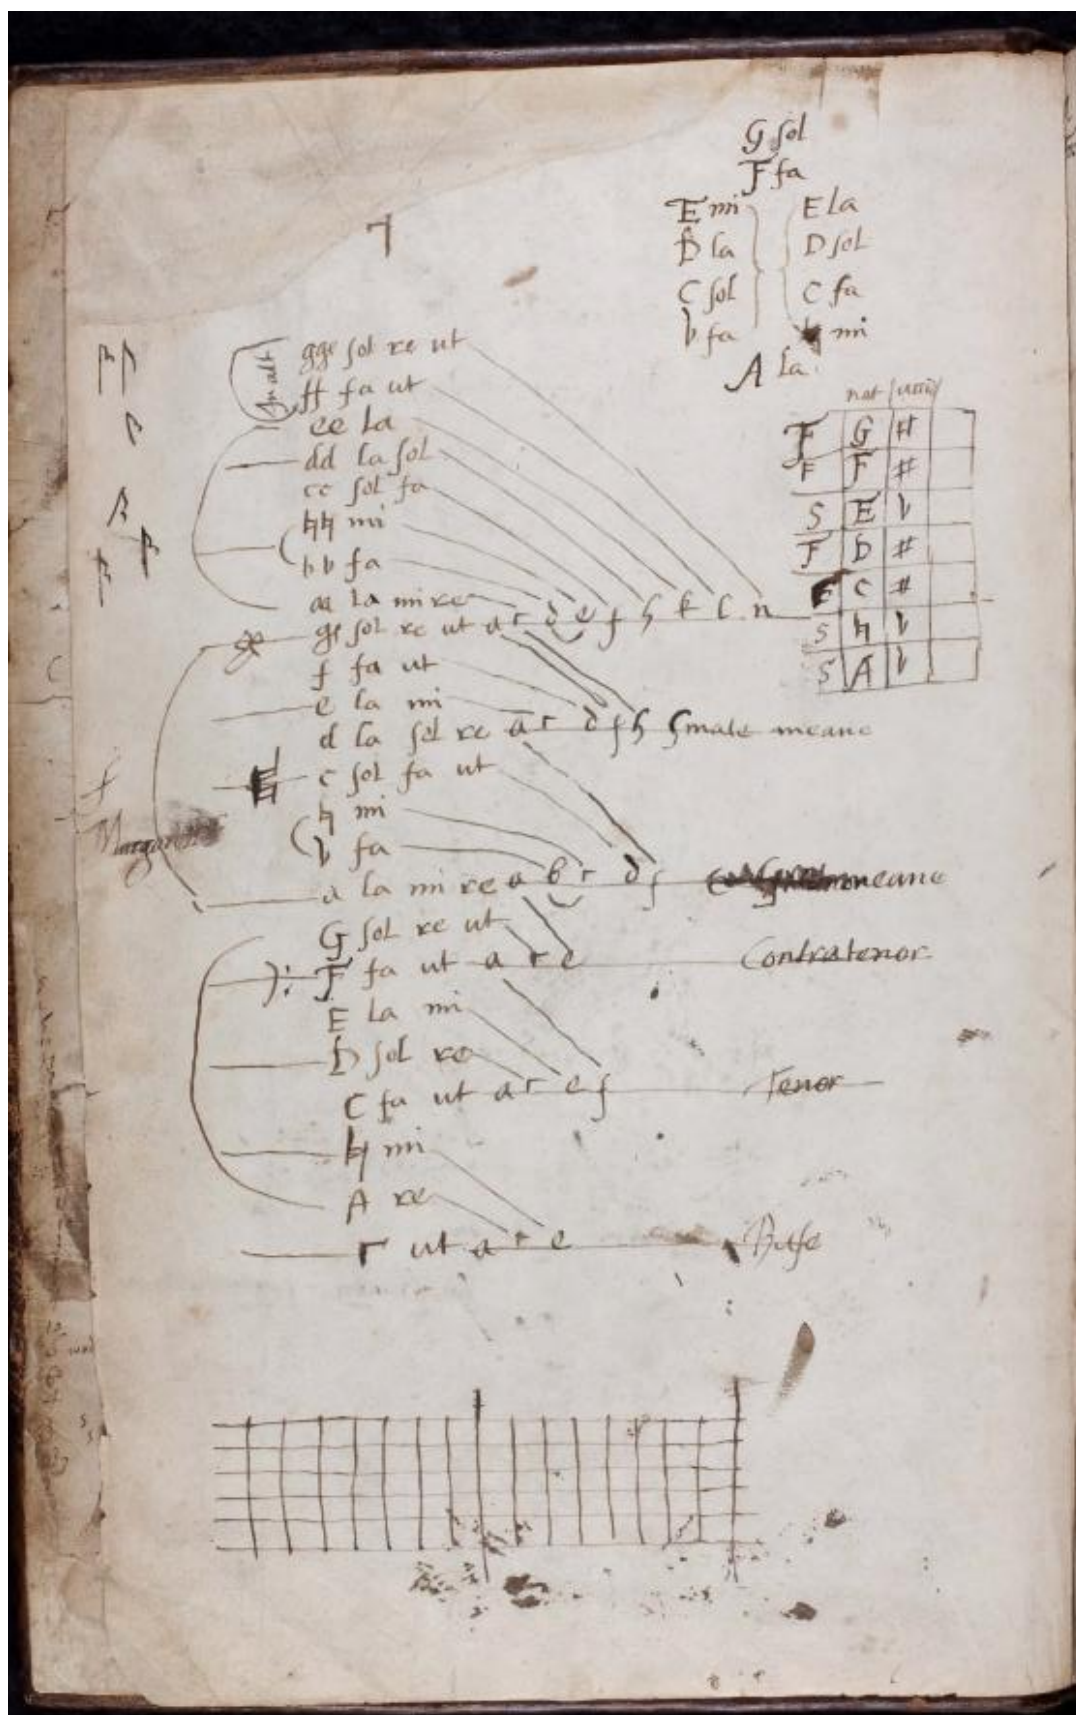 G sol
F fa
E mi E la
D la D sol
C sol C fa
b fa ♮ mi
A la
In alt
gg sol re ut
ff fa ut
ee la
dd la sol
cc sol fa
♮♮ mi
bb fa
aa la mi re
g sol re ut a c d e f h k l n
f fa ut
e la mi
d la sol re a c d f h Smale meane
c sol fa ut
♮ mi
b fa
a la mi re a b c d f meane
G sol re ut
F fa ut a c e Contratenor
E la mi
D sol re
C fa ut a c e f Tenor
♮ mi
A re
Γ ut a c e Base
nat
F G #
F F #
S E b
F D #
C #
S ♮ b
S A b